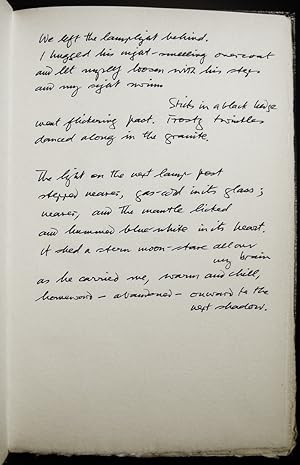 We left the lamplight behind.
I hugged his night-smelling overcoat
and let myself loosen with his steps
and my sight swim.
Sticks in a black hedge
went flickering past. Frosty twinkles
danced along in the granite.
The light on the next lamp post
stepped nearer, gas-cold in its glass;
nearer, and the mantle licked
and hummed blue-white in its heart.
It shed a stern moon-stare all over
my brain
as he carried me, warm and chill,
homeward - abandoned - onward to the
next shadow.